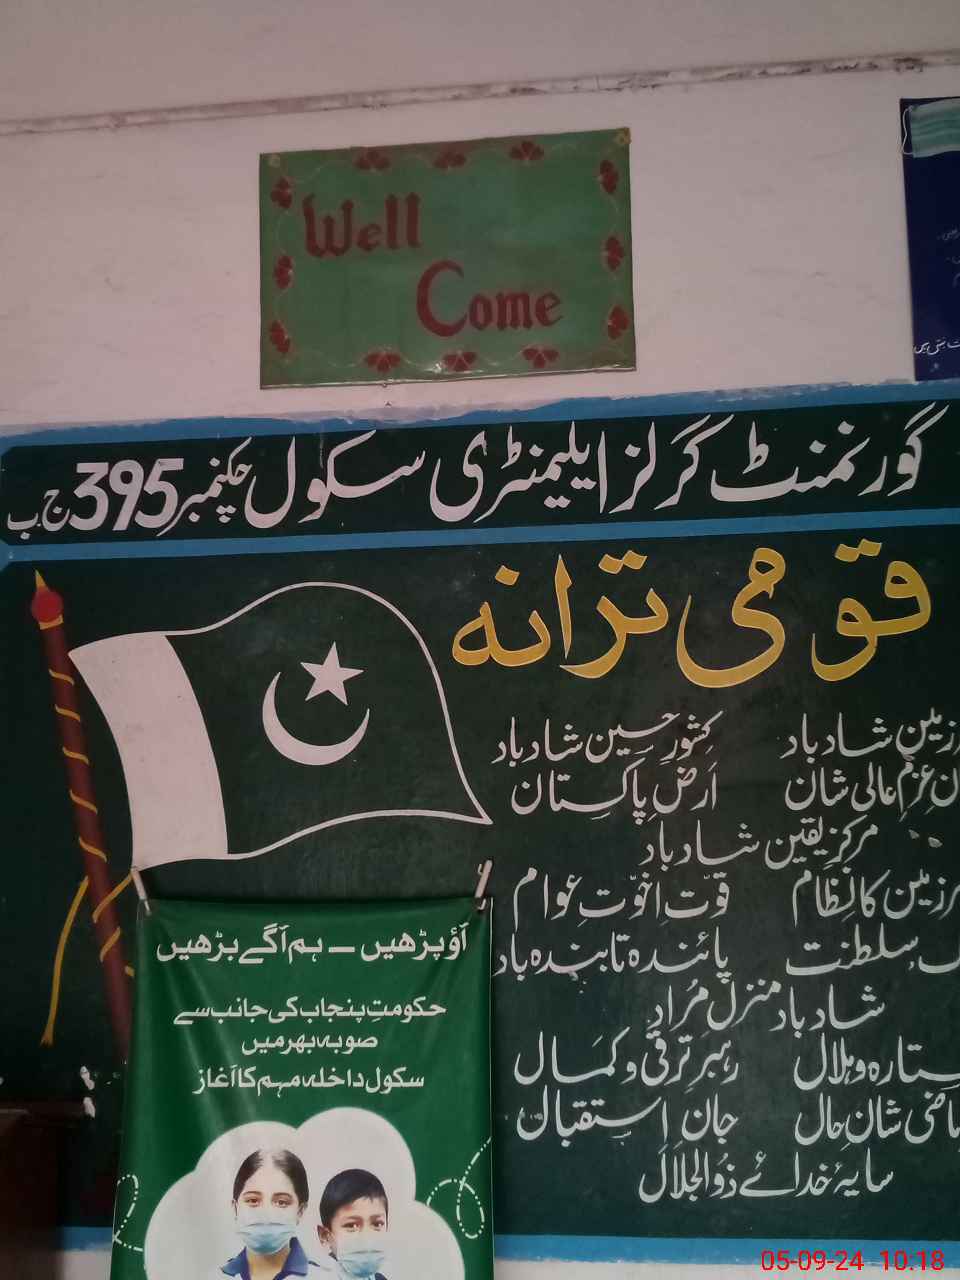 Well
Come
گورنمنٹ گرلز ایلیمنٹری سکول چکنمبر 395 ج ب
قومی ترانہ
شاد باد کشورِ حسین شاد باد
عزم عالی شان ارضِ پاکستان
مرکز یقین شاد باد
کا نظام قوّتِ اخوّتِ عوام
سلطنت پائندہ تابندہ باد
شاد باد منزل مُراد
ستارہ و ہلال رہبر ترقی و کمال
ماضی شان حال جان استقبال
سایۂ خدائے ذوالجلال
آؤ پڑھیں – ہم آگے بڑھیں
حکومتِ پنجاب کی جانب سے
صوبہ بھر میں
سکول داخلہ مہم کا آغاز
05-09-24 10:18